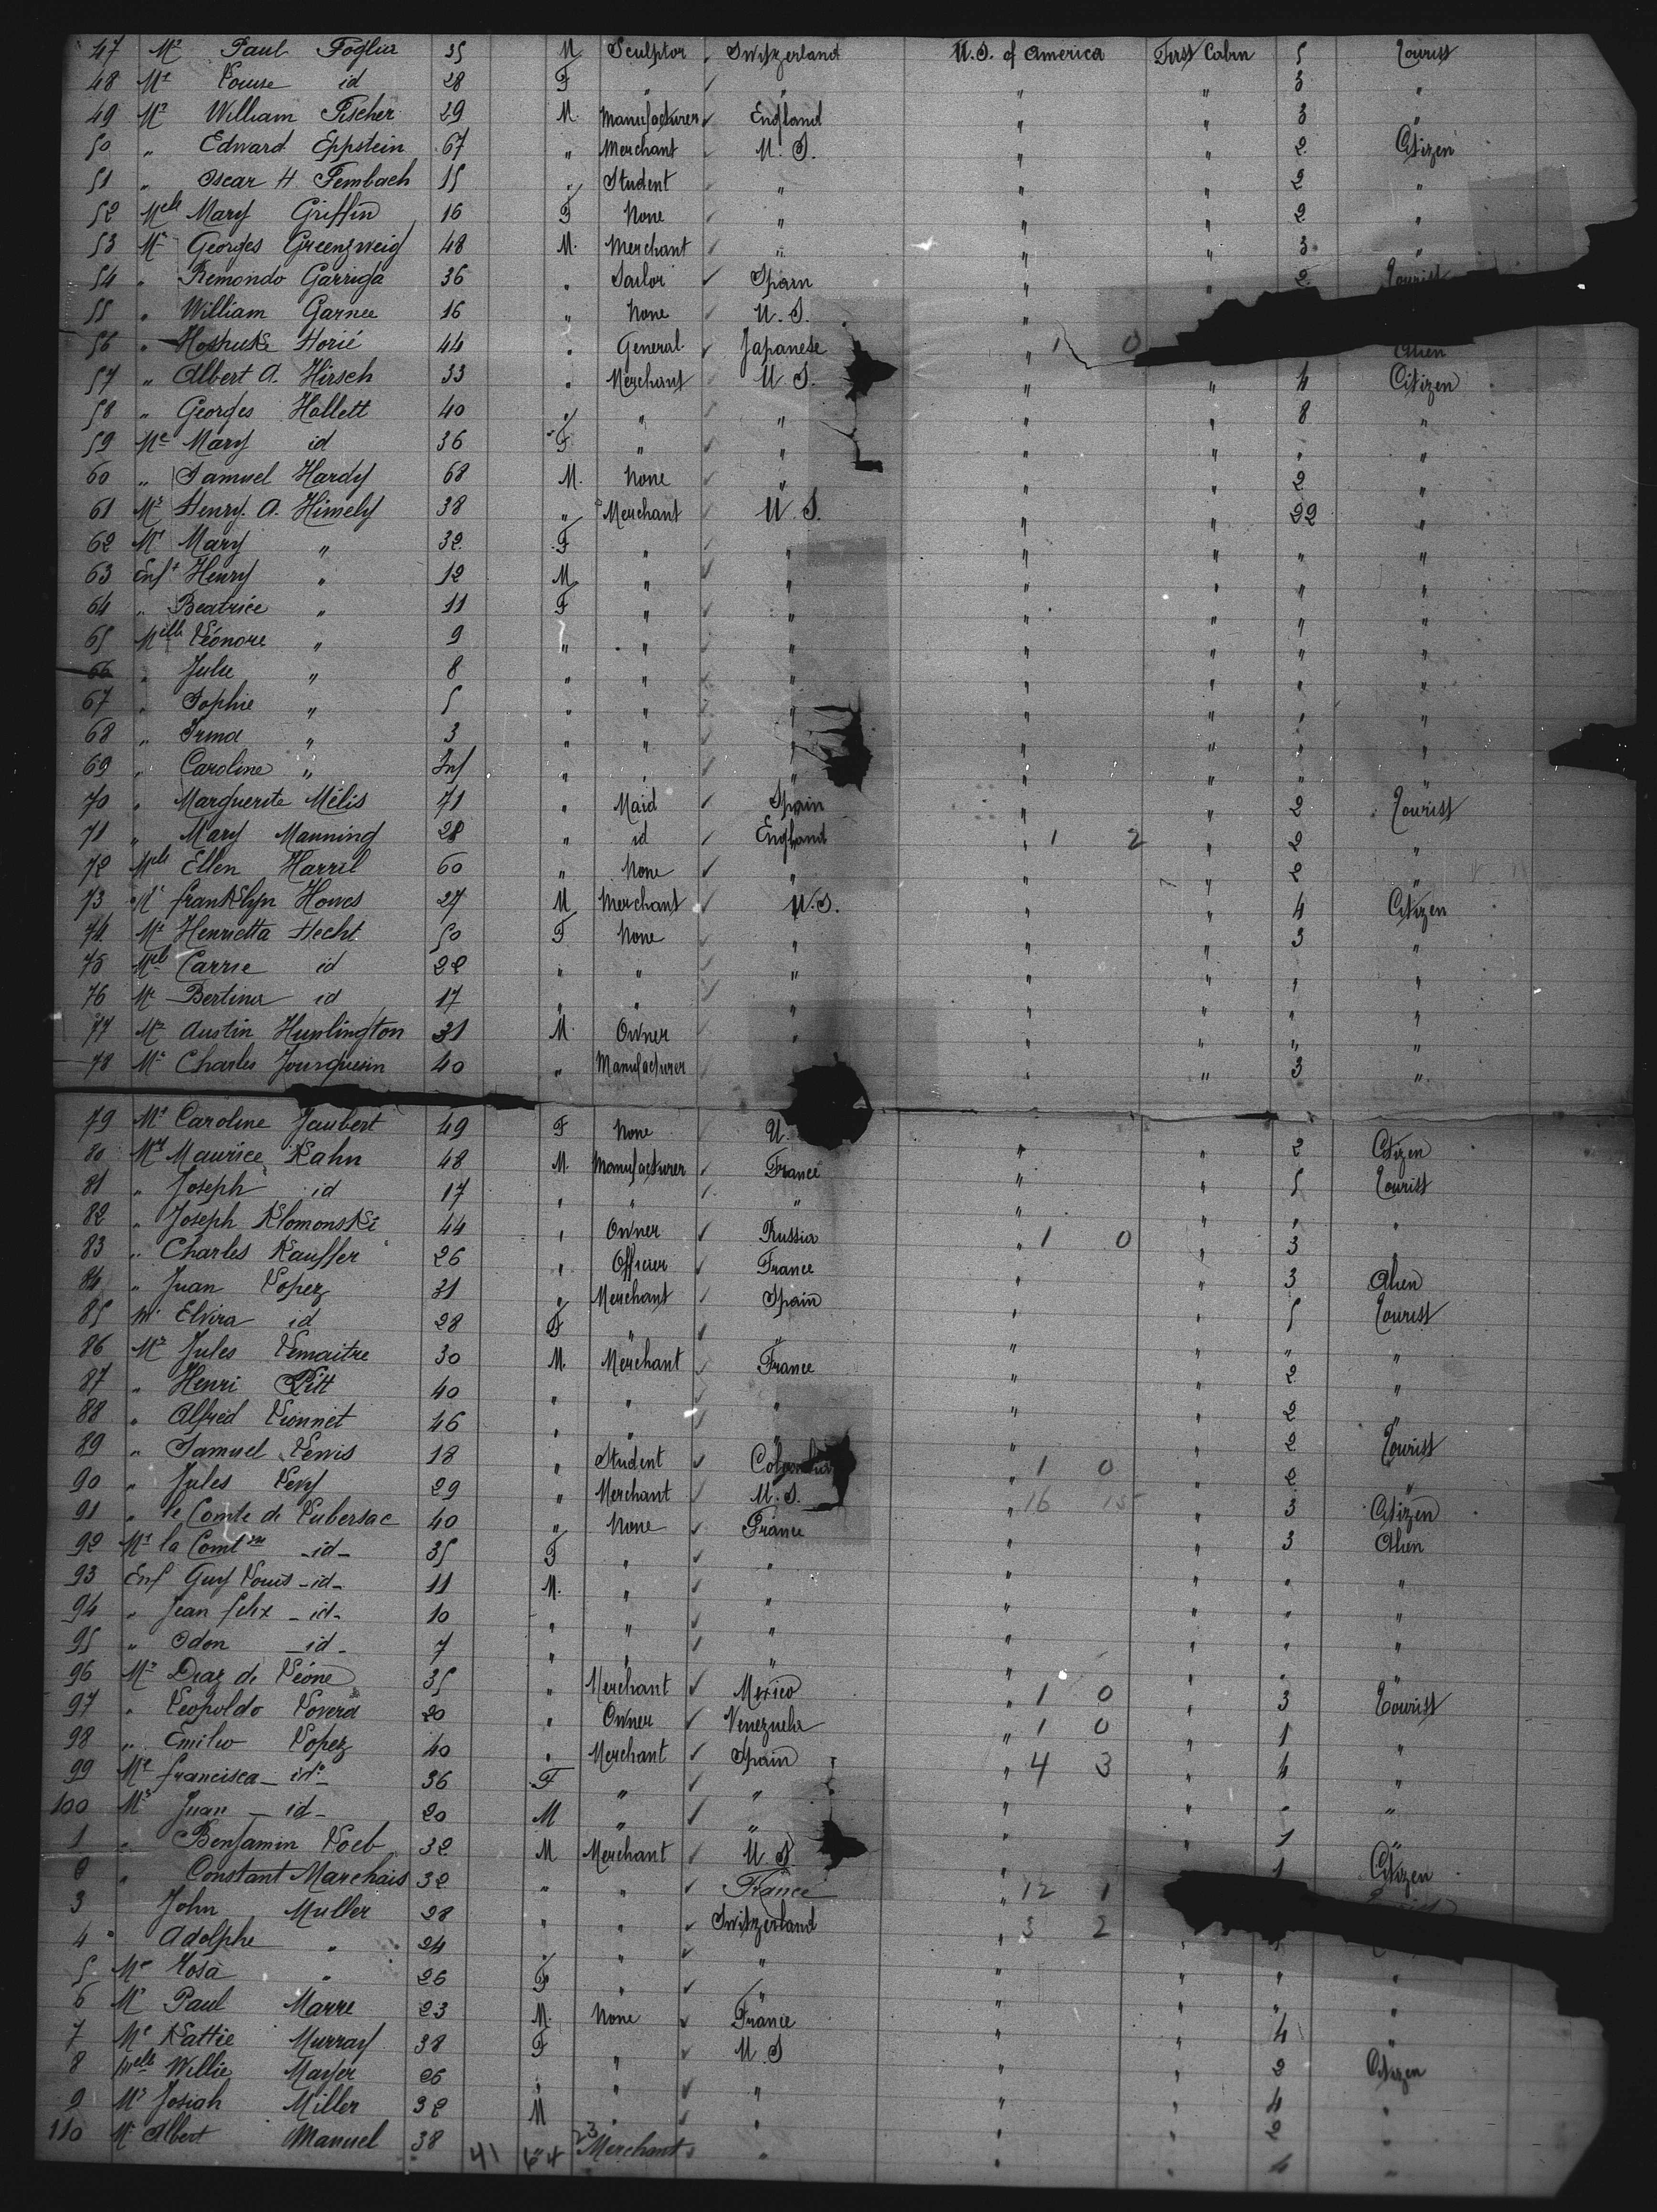 47 Mr Paul Foglia 35 M Sculptor Switzerland U.S. of America First Cabin 5 Tourist
48 Me Louise id 28 F " " " " 3 "
49 Mr William Fischer 29 M. Manufacturer England " " 3 "
50 " Edward Eppstein 67 " Merchant U.S. " " 2 Citizen
51 " Oscar H Fembach 15 " Student " " " 2 "
52 Melle Mary Griffin 16 F None " " " 2 "
53 Mr Georges Greenzweig 48 M. Merchant " " " 3 "
54 " Remondo Garriga 36 " Sailor Spain " " 2 Tourist
55 " William Garnee 16 " None U.S. "
56 " Horié 44 " General Japanese " 1 0 Alien
57 " Albert A. Hirsch 33 " Merchant U.S. " " 4 Citizen
58 " Georges Hallett 40 " " " " " 8 "
59 Me Mary id 36 F " " " " " "
60 " Samuel Hardy 68 M. None " " " 2 "
61 Mr Henry. A. Himely 38 " Merchant U.S. " " 22 "
62 Me Mary " 32 F " " " " " "
63 Enft Henry " 12 M " " " " " "
64 " Beatrice " 11 F " " " " " "
65 Melle Léonore " 9 " " " " " " "
66 " Julie " 8 " " " " " " "
67 " Sophie " 5 " " " " " " "
68 " Irma " 3 " " " " " " "
69 " Caroline " Inf " " " " " " "
70 " Marguerite Mélis 71 " Maid Spain " " 2 Tourist
71 " Mary Manning 28 " id England " 1 2 " 2 "
72 Melle Ellen Harril 60 " None " " " 2 "
73 Mr Francklyn Howes 27 M Merchant U.S. " " 4 Citizen
74 Me Henrietta Hecht 50 F None " " " 3 "
75 Melle Carrie id 22 " " " " " " "
76 Me Bertina id 17 " " " " " " "
77 Mr Austin Hunlington 31 M. Owner " " " " "
78 Mr Charles Jourquin 40 " Manufacturer " " 3 "
79 Me Caroline Jaubert 49 F None U. " " 2 Citizen
80 Mr Maurice Kahn 48 M. Manufacturer France " " 5 Tourist
81 " Joseph id 17 " " " " " " "
82 " Joseph Klomonski 44 " Owner Russia " 1 0 " 3 "
83 " Charles Kauffer 26 " Officier France " " 3 Alien
84 " Juan Lopez 31 " Merchant Spain " " 5 Tourist
85 Me Elvira id 28 F " " " " " "
86 Mr Jules Lemaitre 30 M. Merchant France " " 2 "
87 " Henri Litt 40 " " " " " 2 "
88 " Alfred Lionnet 46 " " " " " 2 Tourist
89 " Samuel Lewis 18 " Student Colombia " 1 0 " 2 "
90 " Jules Levy 29 " Merchant U.S. " 16 15 " 3 Citizen
91 " le Comte de Lubersac 40 " None France " " 3 Alien
92 Me la Comtsse -id- 35 F " " " " " "
93 Enf Guy Louis -id- 11 M. " " " " " "
94 " Jean felix -id- 10 " " " " " " "
95 " Odon -id- 7 " " " " " " "
96 Mr Diaz de Léone 35 " Merchant Mexico " 1 0 " 3 Tourist
97 " Leopoldo Lovera 20 " Owner Venezuela " 1 0 " 1 "
98 " Emilio Lopez 40 " Merchant Spain " 4 3 " 4 "
99 Me francisca -id- 36 F " " " " " "
100 Mr Juan -id- 20 M " " " " 1 "
1 " Benjamin Loeb 32 M Merchant U S " 1 Citizen
2 " Constant Marchais 32 " " France " 12 1
3 John Muller 28 " " Switzerland " 3 2
4 " Adolphe " 24 " " " " " "
5 Me Rosa " 26 F " " " " " "
6 Mr Paul Marre 23 M. None France " " 4 "
7 Me Kattie Murray 38 F " U.S " " 2 Citizen
8 Melle Willie Mayer 26 " " " " " 4 "
9 Mr Josiah Miller 32 M " " " " 2 "
110 Mr Albert Manuel 38 Merchant " " 4 "
41 64 23